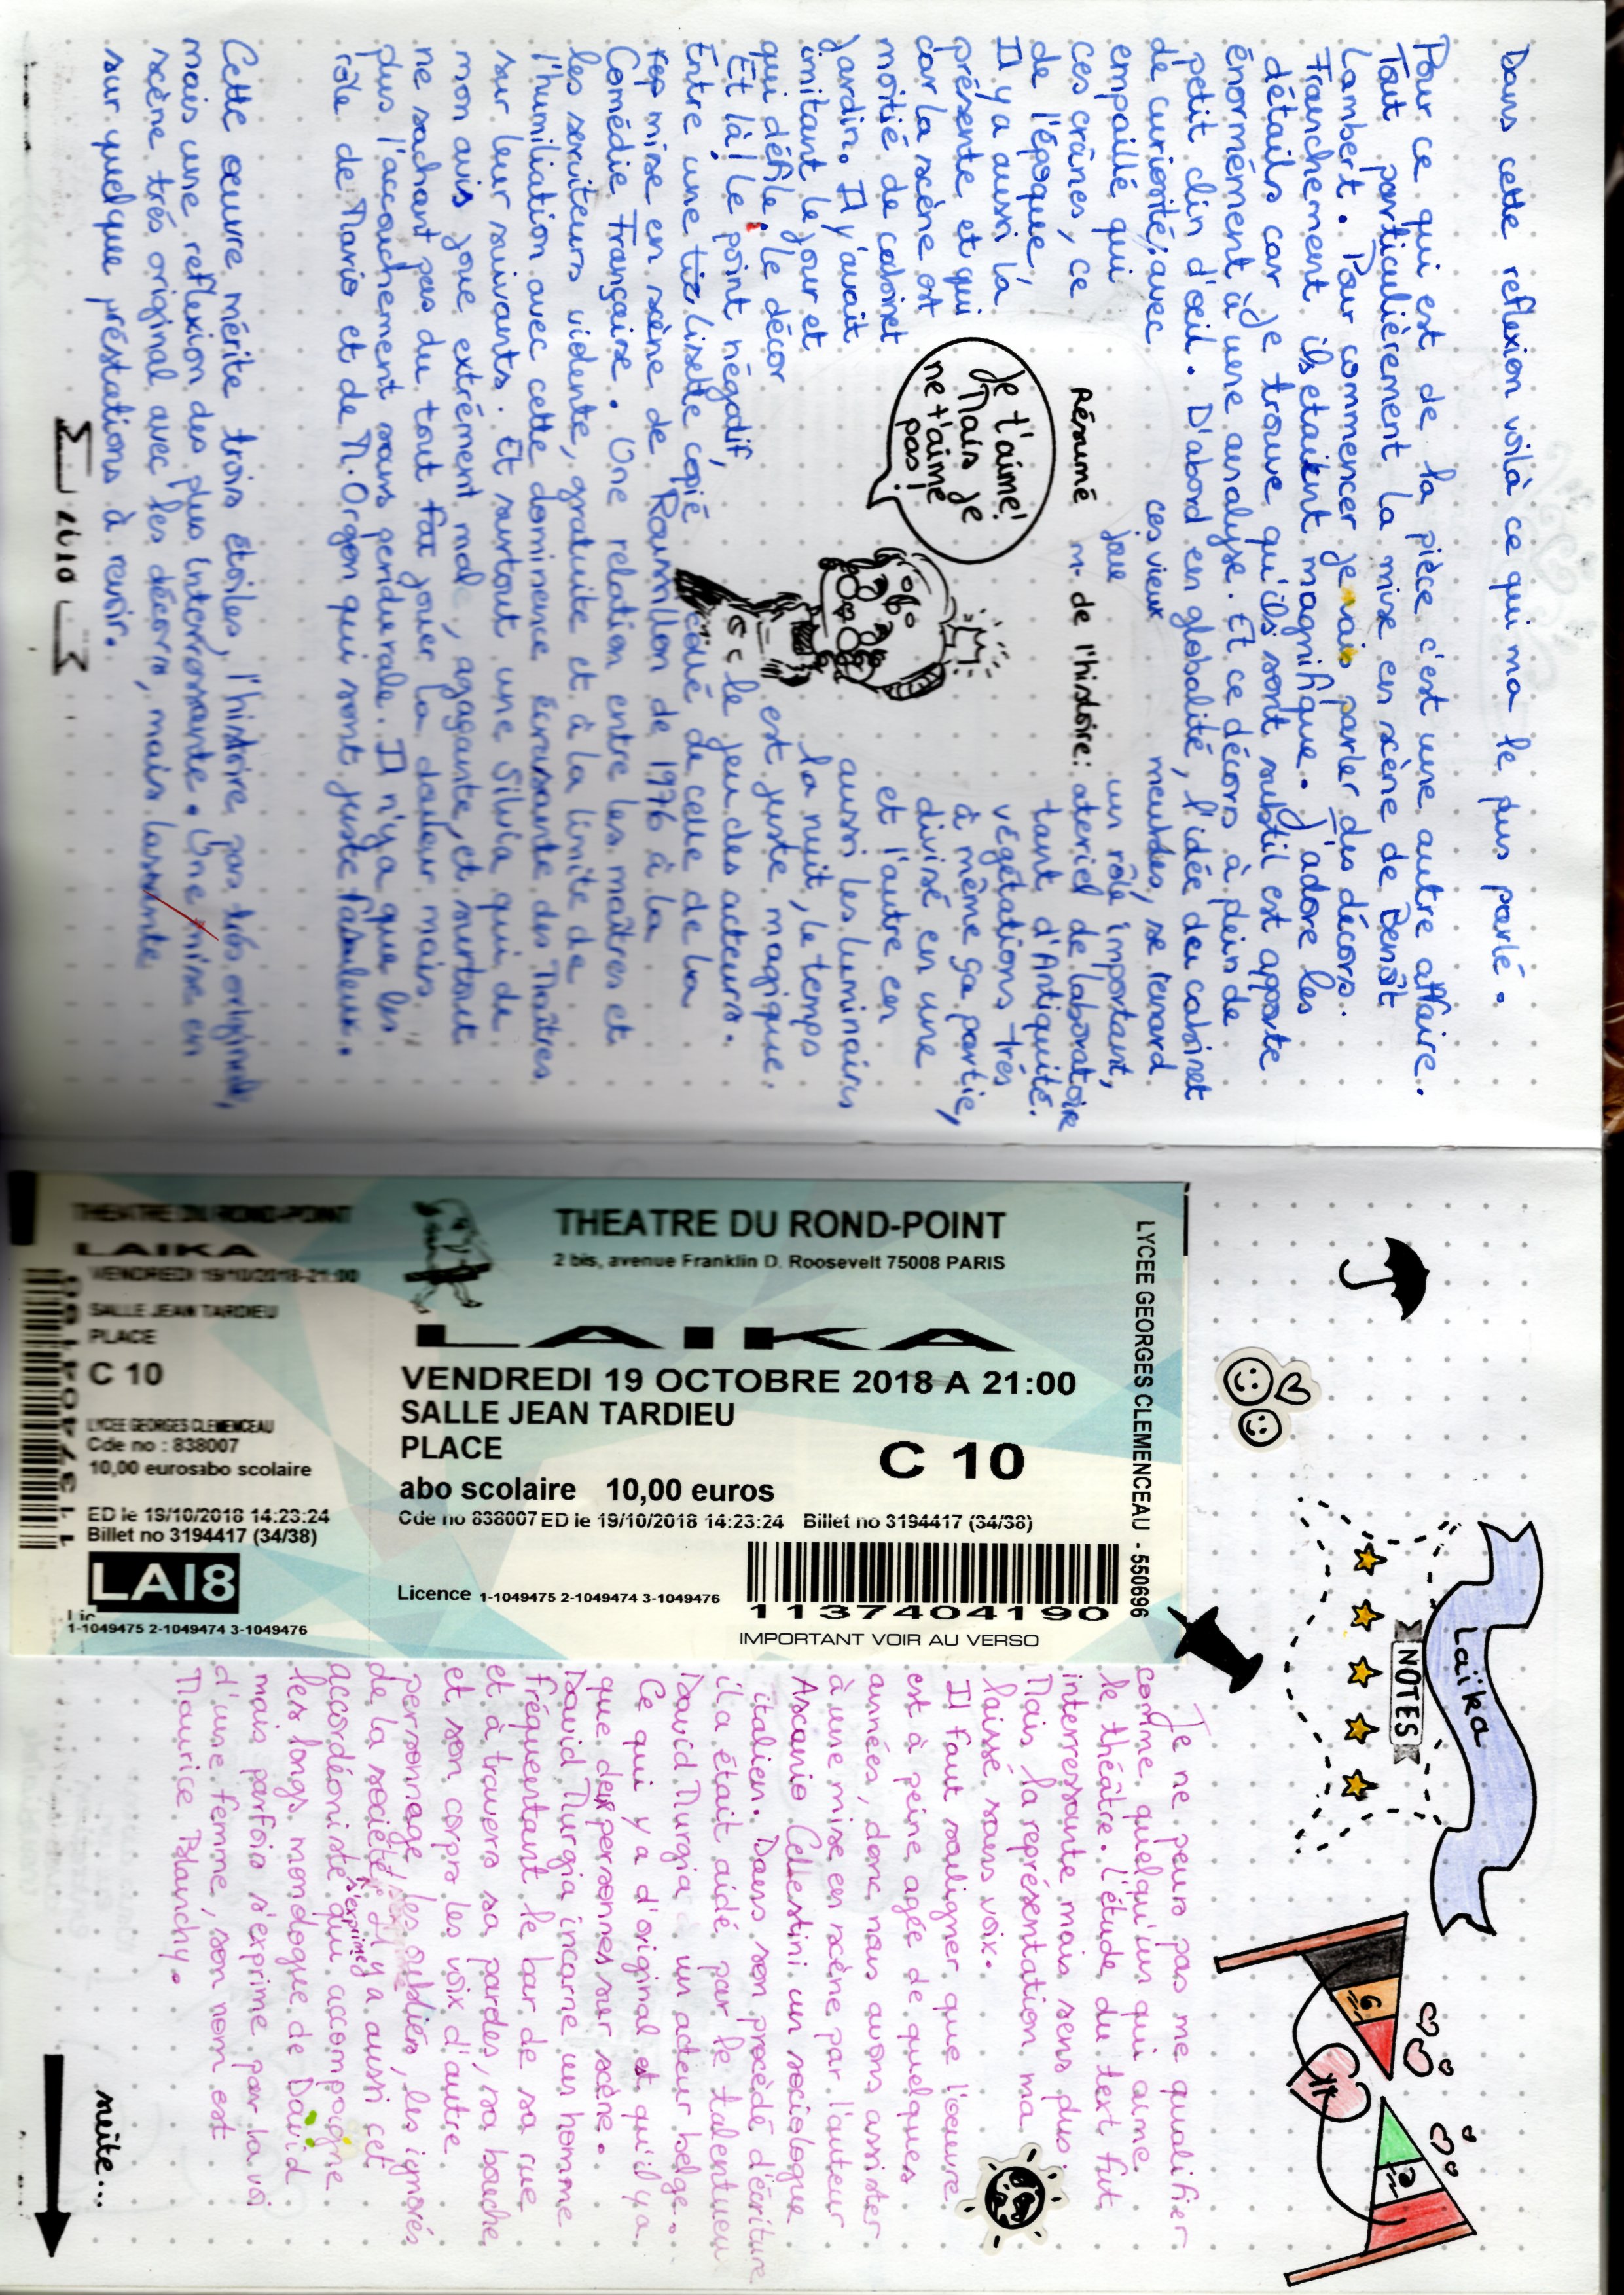 Dans cette reflexion voilà ce qui ma le plus parlé.
Pour ce qui est de la pièce c'est une autre affaire.
Tout particulièrement la mise en scène de Benoît
Lambert. Pour commencer je vais parler des décors.
Franchement ils etaient magnifique. J'adore les
détails car je trouve qu'ils sont subtil est apporte
énormément à une analyse. Et ce décors à plein de
petit clin d'œil. D'abord en globalité, l'idée du cabinet
de curiosité; avec ces vieux meubles, se renard
empaillé qui joue un rôle important,
ces crânes, ce m- ateriel de laboratoire
de l'époque, tant d'Antiquité.
Il y a aussi la végétations trés
présente et qui à même ça partie,
car la scène est divisé en une
moitié de cabinet et l'autre en
jardin. Il y'avait aussi les luminaires
imitant le jour et la nuit, le temps
qui défile. Le décor est juste magique.
Et là! Le point négatif, le jeu des acteurs.
Entre une Lisette copié collé de celle de la
mise en scène de Roussillon de 1976 à la
Comédie Française. Une relation entre les maîtres et
les serviteurs violente, gratuite et à la limite de
l'humiliation avec cette dominence écrasante des Maîtres
sur leur suivants. Et surtout une Silvia qui de
mon avis joue extrément mal, agaçante, et surtout
ne sachant pas du tout jouer la douleur mais
plus l'accouchement sans peridurale. Il n'y a que les
rôle de Mario et de M. Orgon qui sont juste fabuleux.
Cette œuvre mérite trois étoiles, l'histoire pas trés originale,
mais une reflexion des plus interressante. Une mise en
scène trés original avec les décors, mais lassante
sur quelque préstations à revoir.
2018
Résumé de l'histoire:
Je t'aime!
Mais je
ne t'aime
pas!
Laïka
NOTES
LYCEE GEORGES CLEMENCEAU - 550696
THEATRE DU ROND-POINT
2 bis, avenue Franklin D. Roosevelt 75008 PARIS
LAIKA
VENDREDI 19 OCTOBRE 2018 A 21:00
SALLE JEAN TARDIEU
PLACE C 10
abo scolaire 10,00 euros
Cde no 838007 ED le 19/10/2018 14:23:24 Billet no 3194417 (34/38)
Licence 1-1049475 2-1049474 3-1049476
1 137404 1190
IMPORTANT VOIR AU VERSO
THEATRE DU ROND-POINT
LAIKA
VENDREDI 19/10/2018-21:00
SALLE JEAN TARDIEU
PLACE
C 10
LYCEE GEORGES CLEMENCEAU
Cde no : 838007
10,00 eurosabo scolaire
ED le 19/10/2018 14:23:24
Billet no 3194417 (34/38)
LAI8
1-1049475 2-1049474 3-1049476
Je ne peurs pas me qualifier
comme quelqu'un qui aime
le théâtre. L'étude du text fut
interressante mais sens plus.
Mais la représentation ma
laissé sans voix.
Il faut souligner que l'oeuvre
est à peine agée de quelques
années, donc nous avons assister
à une mise en scène par l'auteur
Ascanio Cellestini un sociologue
italien. Dans son procèdé d'écriture
il a était aidé par le talentueu
David Murgia un acteur belge.
Ce qui y a d'original est qu'il y a
que deux personnes sur scène.
David Murgia incarne un homme
fréquentant le bar de sa rue
et à travers sa paroles, sa bouche
et son corps les voix d'autre
personnage, les oubliés, les ignorés
de la société. Il y a aussi cet
s'exprime
accordéoniste qui accompagne
les longs monologue de David
mais parfois s'exprime par la voi
d'une femme, son nom est
Maurice Blanchy.
suite...